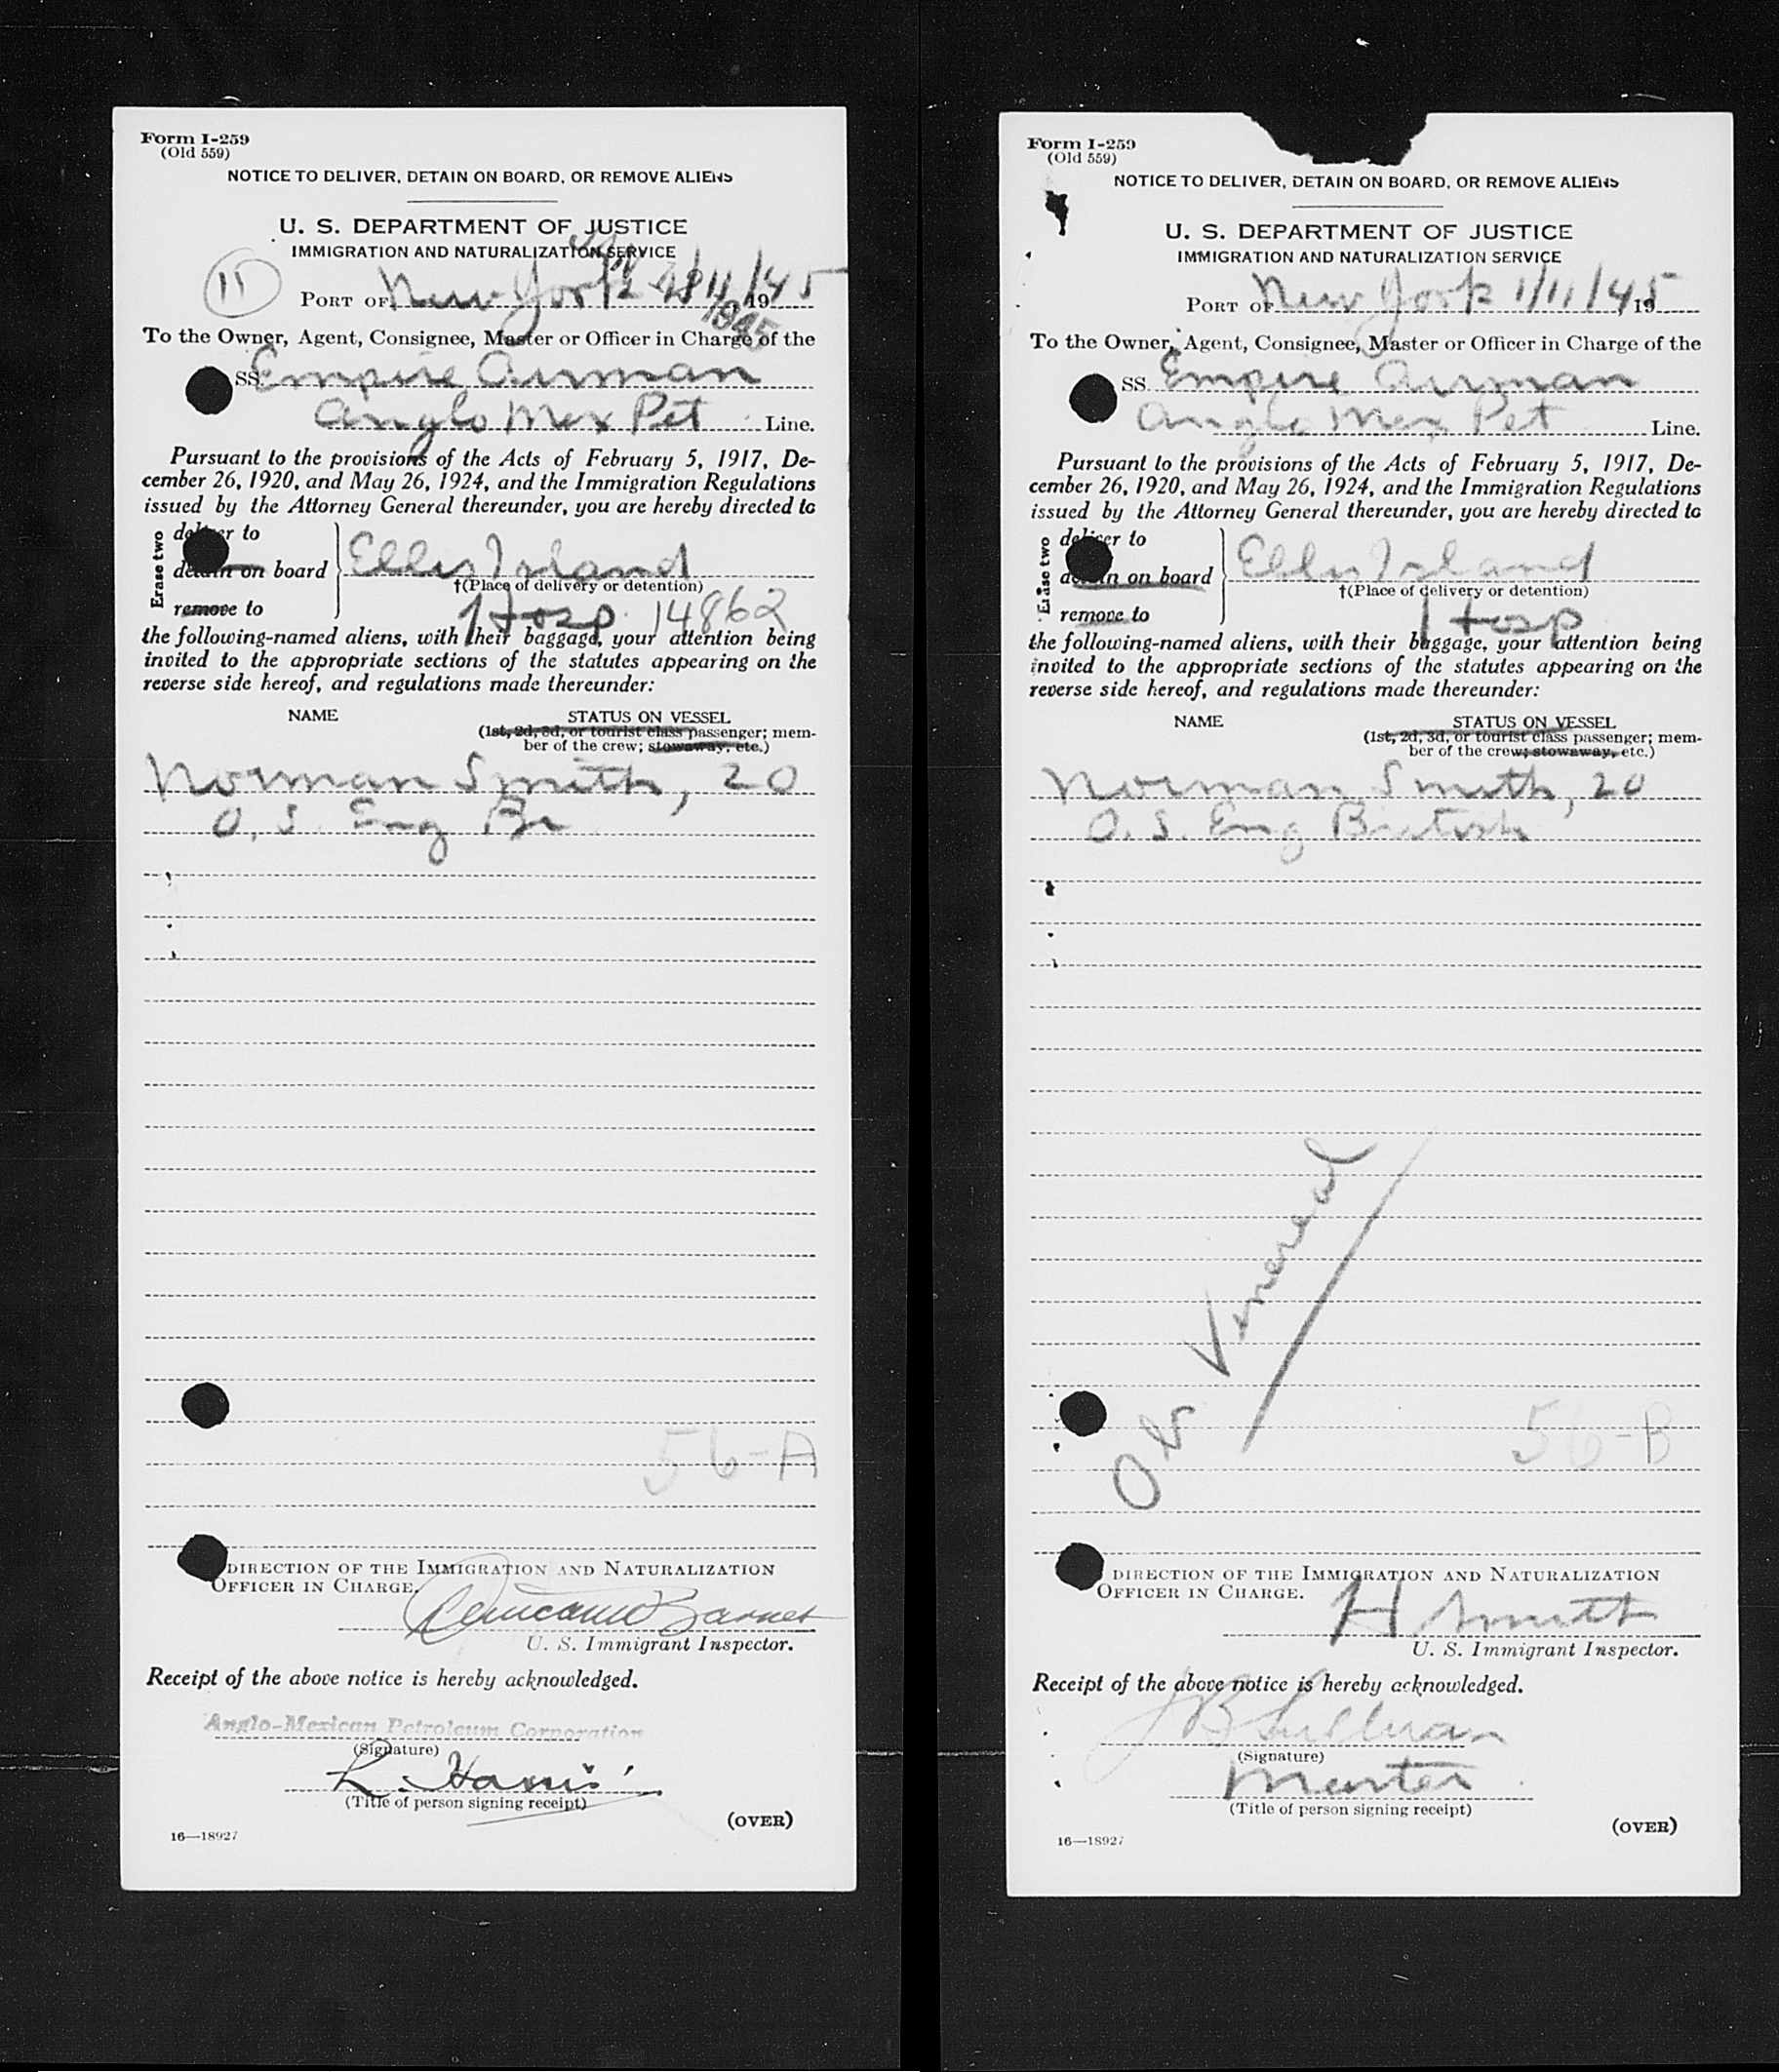 Form I-259
(Old 559)
NOTICE TO DELIVER, DETAIN ON BOARD, OR REMOVE ALIENS
U. S. DEPARTMENT OF JUSTICE
IMMIGRATION AND NATURALIZATION SERVICE
11
PORT OF New York 1/11/45 19
1945
To the Owner, Agent, Consignee, Master or Officer in Charge of the
SS. Empire Airman
Anglo Mex Pet Line.
Pursuant to the provisions of the Acts of February 5, 1917, De-
cember 26, 1920, and May 26, 1924, and the Immigration Regulations
issued by the Attorney General thereunder, you are hereby directed to
Erase two
deliver to
detain on board
remove to
Ellis Island
†(Place of delivery or detention)
Hosp. 14862
the following-named aliens, with their baggage, your attention being
invited to the appropriate sections of the statutes appearing on the
reverse side hereof, and regulations made thereunder:
NAME
STATUS ON VESSEL
(1st, 2d, 3d, or tourist class passenger; mem-
ber of the crew; stowaway, etc.)
Norman Smith, 20
O. S. Eng Br
56-A
DIRECTION OF THE IMMIGRATION AND NATURALIZATION
OFFICER IN CHARGE.
Barnet
U. S. Immigrant Inspector.
Receipt of the above notice is hereby acknowledged.
Anglo-Mexican Petroleum Corporation
(Signature)
L. Harris
(Title of person signing receipt)
(OVER)
16—18927
Form I-259
(Old 559)
NOTICE TO DELIVER, DETAIN ON BOARD, OR REMOVE ALIENS
U. S. DEPARTMENT OF JUSTICE
IMMIGRATION AND NATURALIZATION SERVICE
PORT OF New York 1/11/45 19
To the Owner, Agent, Consignee, Master or Officer in Charge of the
SS. Empire Airman
Anglo Mex Pet Line.
Pursuant to the provisions of the Acts of February 5, 1917, De-
cember 26, 1920, and May 26, 1924, and the Immigration Regulations
issued by the Attorney General thereunder, you are hereby directed to
Erase two
deliver to
detain on board
remove to
Ellis Island
†(Place of delivery or detention)
Hosp
the following-named aliens, with their baggage, your attention being
invited to the appropriate sections of the statutes appearing on the
reverse side hereof, and regulations made thereunder:
NAME
STATUS ON VESSEL
(1st, 2d, 3d, or tourist class passenger; mem-
ber of the crew; stowaway, etc.)
Norman Smith, 20
O. S. Eng British
56-B
DIRECTION OF THE IMMIGRATION AND NATURALIZATION
OFFICER IN CHARGE.
H Smith
U. S. Immigrant Inspector.
Receipt of the above notice is hereby acknowledged.
J B Sullivan
(Signature)
Master
(Title of person signing receipt)
(OVER)
16—18927